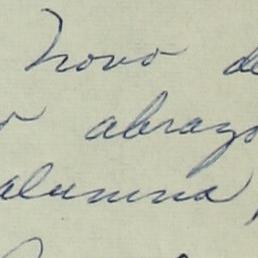 novo de
abrazo
alumna,